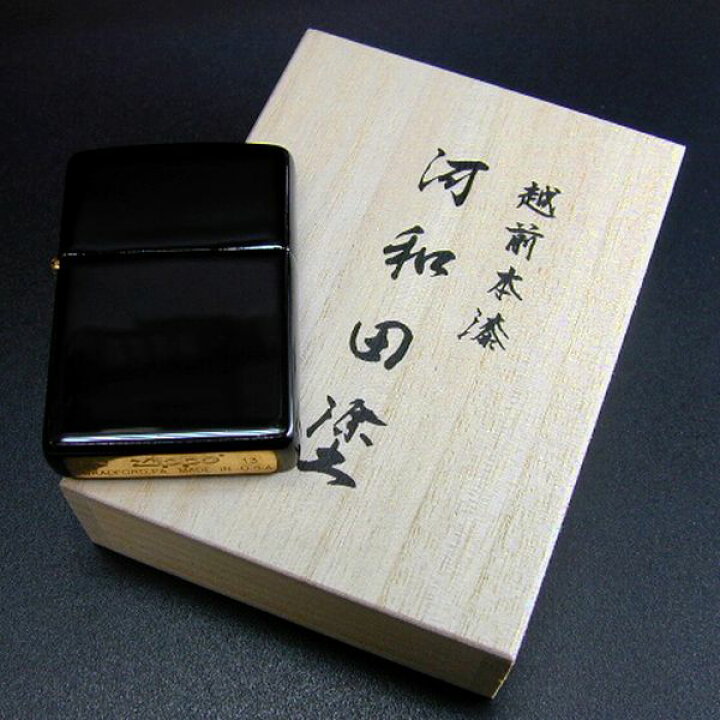 越前本漆
河和田塗
Zippo 13
BRADFORD, PA. MADE IN U.S.A.